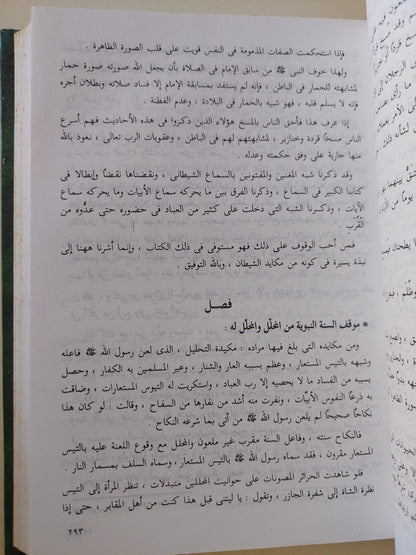 فإذا استحكمت الصفات المذمومة في النفس قويت على قلب الصورة الظاهرة .
ولهذا خوف النبي ﷺ من سابق الإمام في الصلاة بأن يجعل الله صورته صورة حمار
لمشابهته للحمار في الباطن ، فإنه لم يستفد بمسابقة الإمام إلا فساد صلاته وبطلان أجره
فإنه لا يسلم قبله ، فهو شبيه بالحمار في البلادة ، وعدم الفطنة .
إذا عرف هذا فأحق الناس بالمسخ هؤلاء الذين ذكروا في هذه الأحاديث فهم أسرع
الناس مسخًا قردة وخنازير ، لمشابهتهم لهم في الباطن ، وعقوبات الرب تعالى ، نعوذ بالله
منها جارية على وفق حكمته وعدله .
وقد ذكرنا شبه المغنين والمفتونين بالسماع الشيطاني ، ونقضناها نقضًا وإبطالا في
كتابنا الكبير في السماع ، وذكرنا الفرق بين ما يحركه سماع الأبيات وما يحركه سماع
الآيات ، وذكرنا الشبه التي دخلت على كثير من العباد في حضوره حتى عدُّوه من
القُرَب .
فمن أحب الوقوف على ذلك فهو مستوفى في ذلك الكتاب ، وإنما أشرنا ههنا إلى
نبذة يسيرة في كونه من مكايد الشيطان ، وبالله التوفيق .
فصل
* موقف السنة النبوية من المحلِّل والمحلَّل له :
ومن مكايده التي بلغ فيها مراده : مكيدة التحليل ، الذى لعن رسول الله ﷺ فاعله
وشبهه بالتيس المستعار ، وعظم بسببه العار والشنار ، وعير المسلمين به الكفار ، وحصل
بسببه من الفساد ما لا يحصيه إلا رب العباد ، واستكريت له التيوس المستعارات ، وضاقت
به ذرعًا النفوس الأبيَّات ، ونفرت منه أشد من نفارها من السفاح ، وقالت : لو كان هذا
نكاحًا صحيحًا لم يلعن رسول الله ﷺ من أتى بما شرعه النكاح
فالنكاح سنته ، وفاعل السنة مقرب غير ملعون والمحلل مع وقوع اللعنة عليه بالتيس
المستعار مقرون ، فقد سماه رسول الله ﷺ بالتيس المستعار ، وسماه السلف بمسمار النار .
فلو شاهدت الحرائر المصونات على حوانيت المحللين متبذلات ، تنظر المرأة إلى التيس
نظرة الشاة إلى شفرة الجازر ، وتقول : يا ليتنى قبل هذا كنت من أهل المقابر ، حتى إذا
٢٩٣